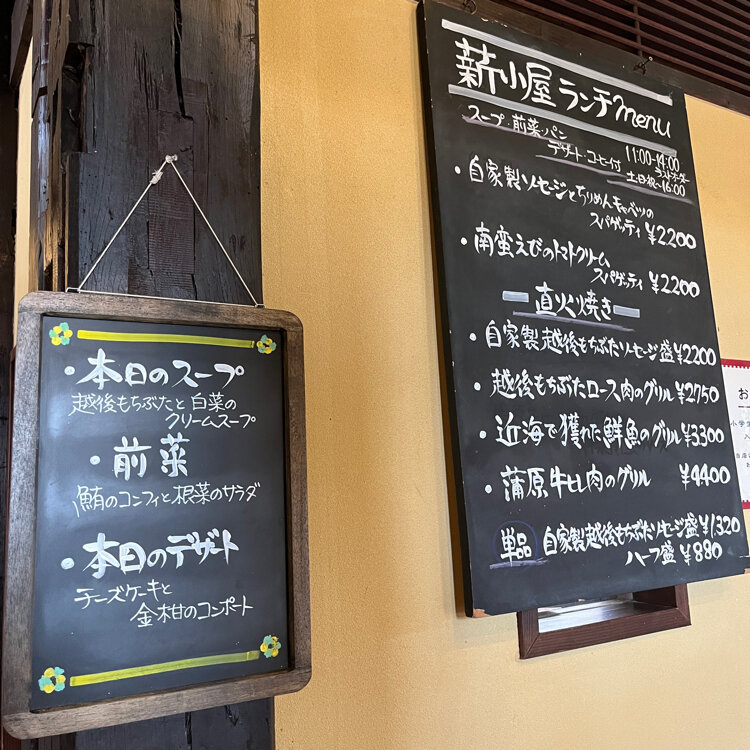 ・本日のスープ
越後もちぶたと白菜の
クリームスープ
・前菜
鮪のコンフィと根菜のサラダ
・本日のデザート
チーズケーキと
金柑のコンポート
薪小屋 ランチmenu
スープ・前菜・パン
デザート・コーヒー付
11:00-14:00
ラストオーダー
土日祝〜16:00
・自家製ソーセージとちりめんキャベツの
スパゲッティ ¥2200
・南蛮えびのトマトクリーム
スパゲッティ ¥2200
直火焼き
・自家製越後もちぶたソーセージ盛¥2200
・越後もちぶたロース肉のグリル¥2750
・近海で獲れた鮮魚のグリル¥3300
・蒲原牛ヒレ肉のグリル ¥4400
単品 自家製越後もちぶたソーセージ盛¥1,320
ハーフ盛¥880
お
小学